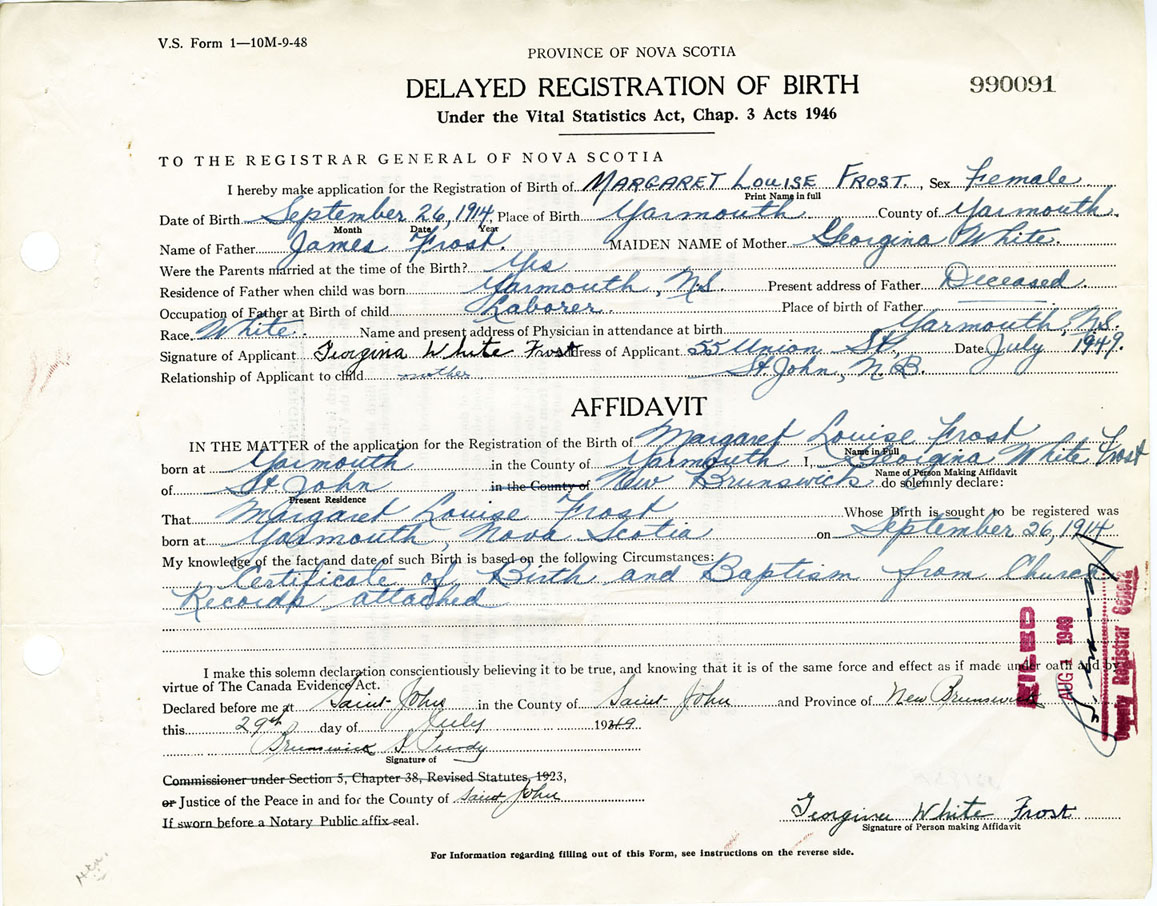 V.S. Form 1—10M-9-48
PROVINCE OF NOVA SCOTIA
DELAYED REGISTRATION OF BIRTH
990091
Under the Vital Statistics Act, Chap. 3 Acts 1946
TO THE REGISTRAR GENERAL OF NOVA SCOTIA
I hereby make application for the Registration of Birth of MARGARET LOUISE FROST., Sex Female
Print Name in full
Date of Birth September 26, 1914. Place of Birth Yarmouth County of Yarmouth.
Month Date Year
Name of Father James Frost. MAIDEN NAME of Mother Georgina White.
Were the Parents married at the time of the Birth? Yes
Residence of Father when child was born Yarmouth, N.S. Present address of Father Deceased
Occupation of Father at Birth of child Laborer. Place of birth of Father
Race White. Name and present address of Physician in attendance at birth Yarmouth, N.S.
Signature of Applicant Georgina White Frost Address of Applicant 55 Union St., Date July 1949.
Relationship of Applicant to child mother St John, N.B.
AFFIDAVIT
IN THE MATTER of the application for the Registration of the Birth of Margaret Louise Frost
Name in Full
born at Yarmouth in the County of Yarmouth I, Georgina White Frost
Name of Person Making Affidavit
of St. John in the County of New Brunswick do solemnly declare:
Present Residence
That Margaret Louise Frost Whose Birth is sought to be registered was
born at Yarmouth, Nova Scotia on September 26, 1914
My knowledge of the fact and date of such Birth is based on the following Circumstances:
Certificate of Birth and Baptism from Church
Records attached
I make this solemn declaration conscientiously believing it to be true, and knowing that it is of the same force and effect as if made under oath and by
virtue of The Canada Evidence Act.
Declared before me at Saint John in the County of Saint John and Province of New Brunswick
this 29th day of July 1949
Brunswick S Purdy
Signature of
Commissioner under Section 5, Chapter 38, Revised Statutes, 1923,
or Justice of the Peace in and for the County of Saint John
If sworn before a Notary Public affix seal.
Georgina White Frost
Signature of Person making Affidavit
For Information regarding filling out of this Form, see instructions on the reverse side.
FILED
AUG 1 1949
Deputy Registrar General